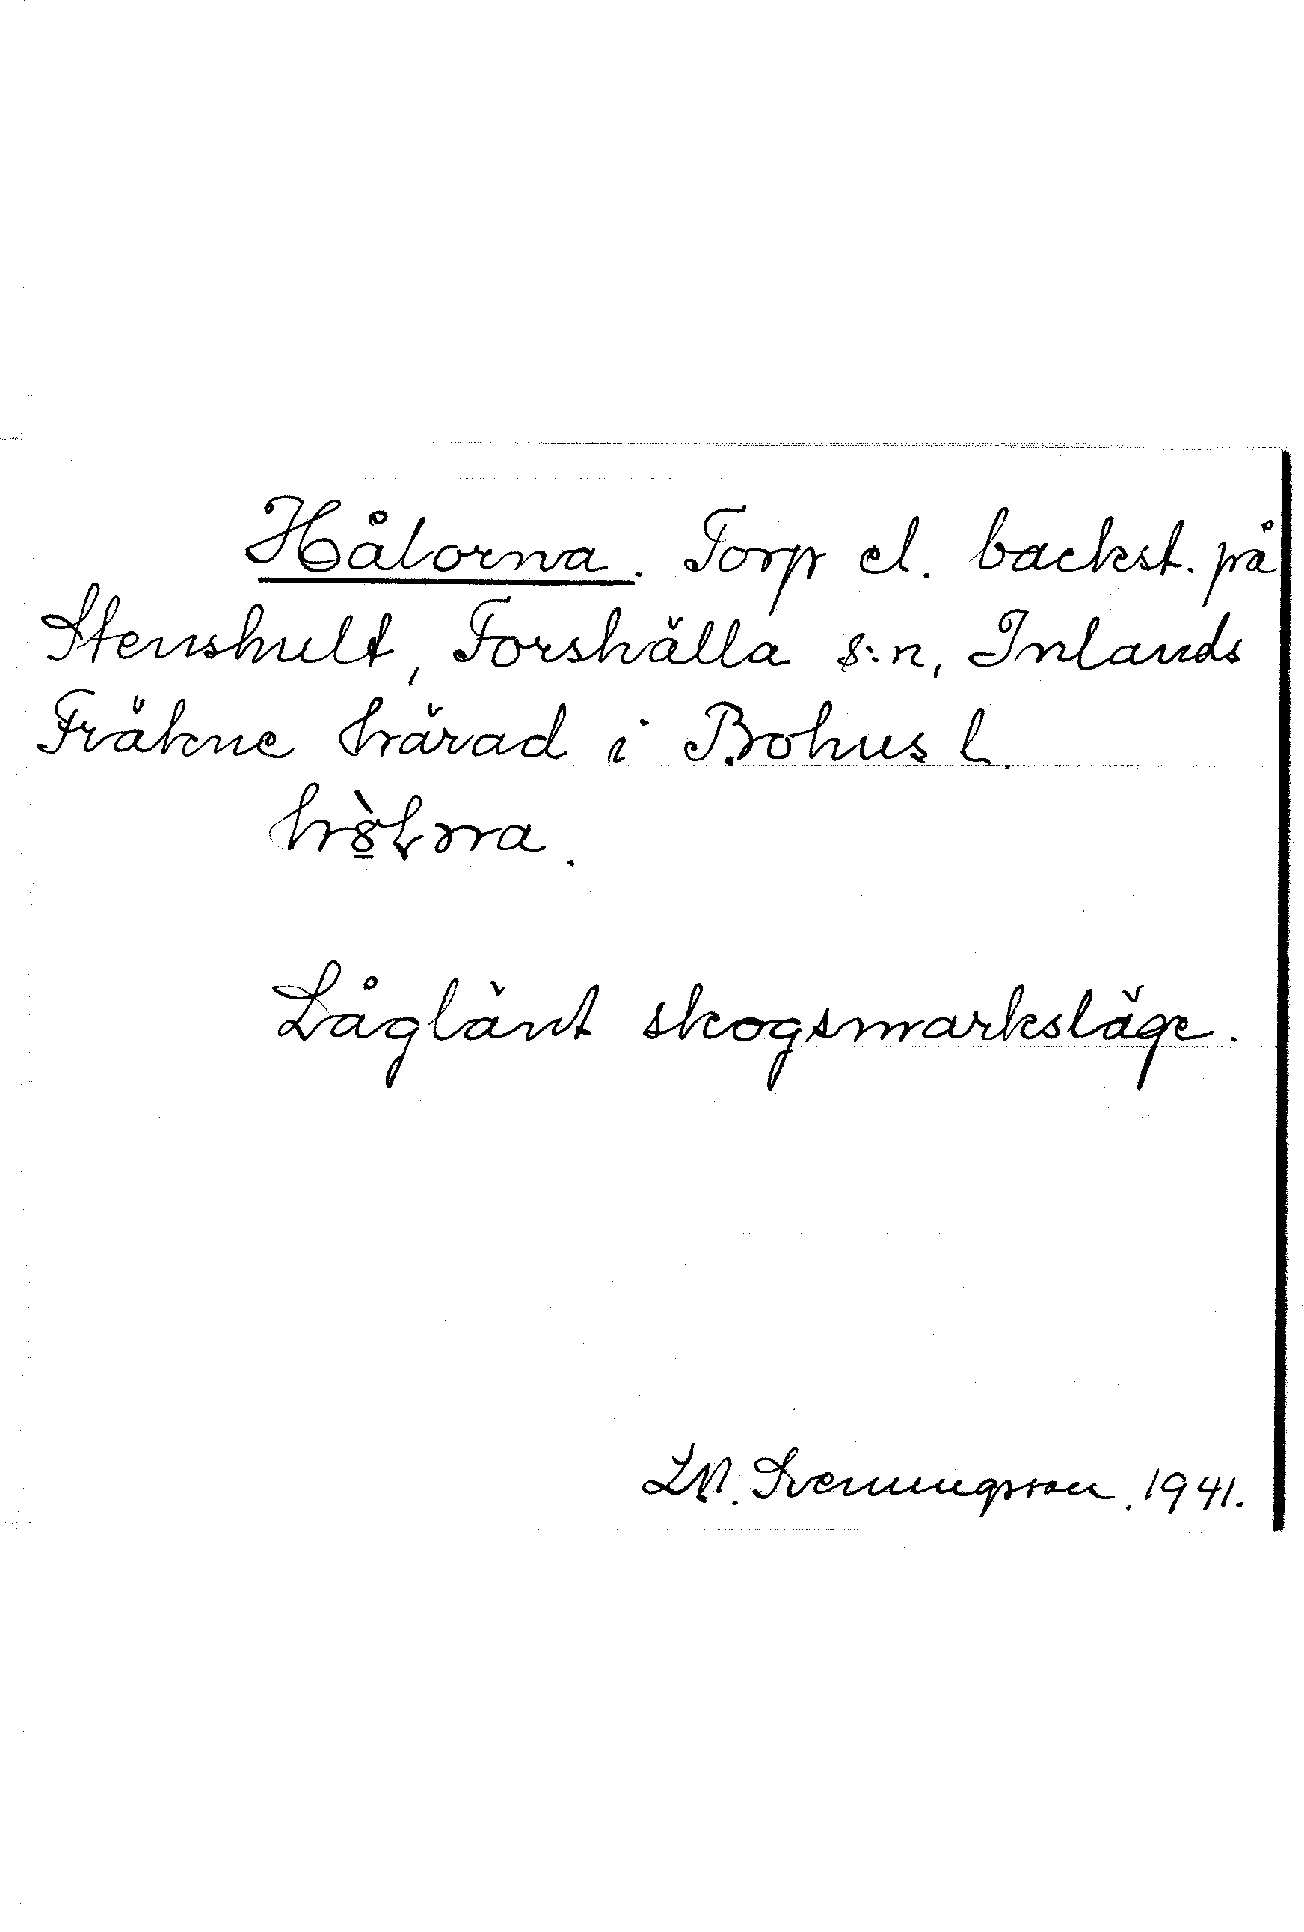 Hålorna. Torp el. backst. på
Stenshult, Forshälla s:n, Inlands
Fräkne härad i Bohus l.
Låglänt skogsmarksläge.
Svenningsson. 1941.